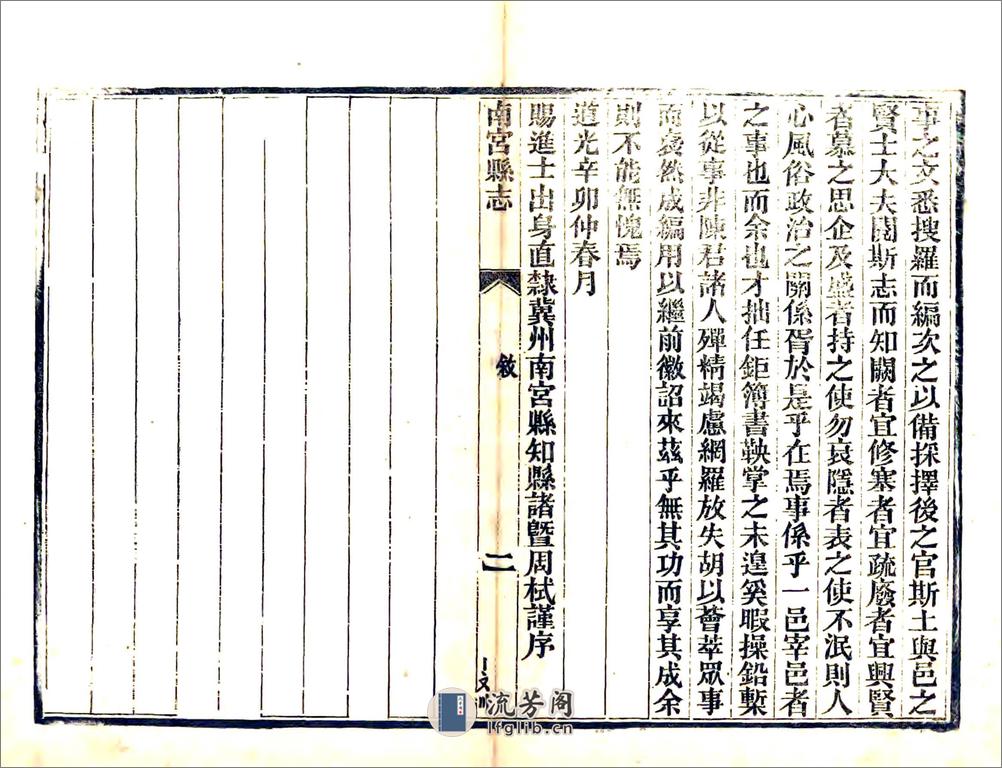 事之文悉搜羅而編次之以備採擇後之官斯土與邑之
賢士大夫閱斯志而知闕者宜修塞者宜疏廢者宜興賢
者慕之思企及盛者持之使勿衰隱者表之使不泯則人
心風俗政治之關係胥於是乎在焉事係乎一邑宰邑者
之事也而余也才拙任鉅簿書鞅掌之未遑奚暇操鉛槧
以從事非陳君諸人殫精竭慮網羅放失胡以薈萃眾事
而裒然成編用以繼前徽詔來茲乎無其功而享其成余
則不能無愧焉
道光辛卯仲春月
賜進士出身直隸冀州南宮縣知縣諸暨周栻謹序
南宮縣志
敘
二
流芳阁
lfglib.cn